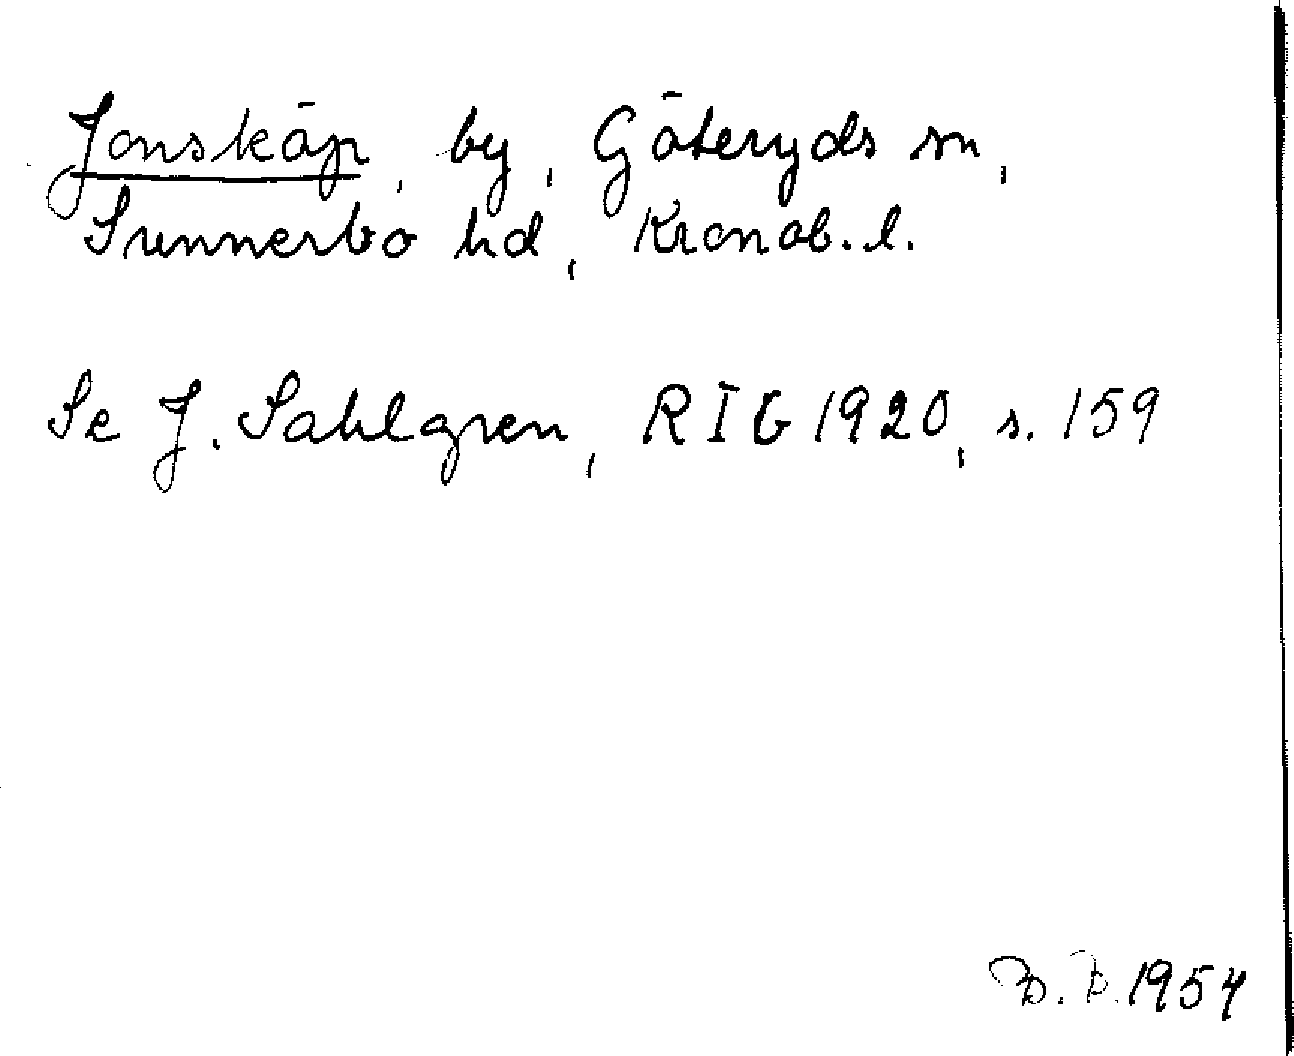 Jonsköp, by, Göteryds sn,
Sunnerbo hd, Kronob. l.
Se J. Sahlgren, RIG 1920, s. 159
B. B. 1954